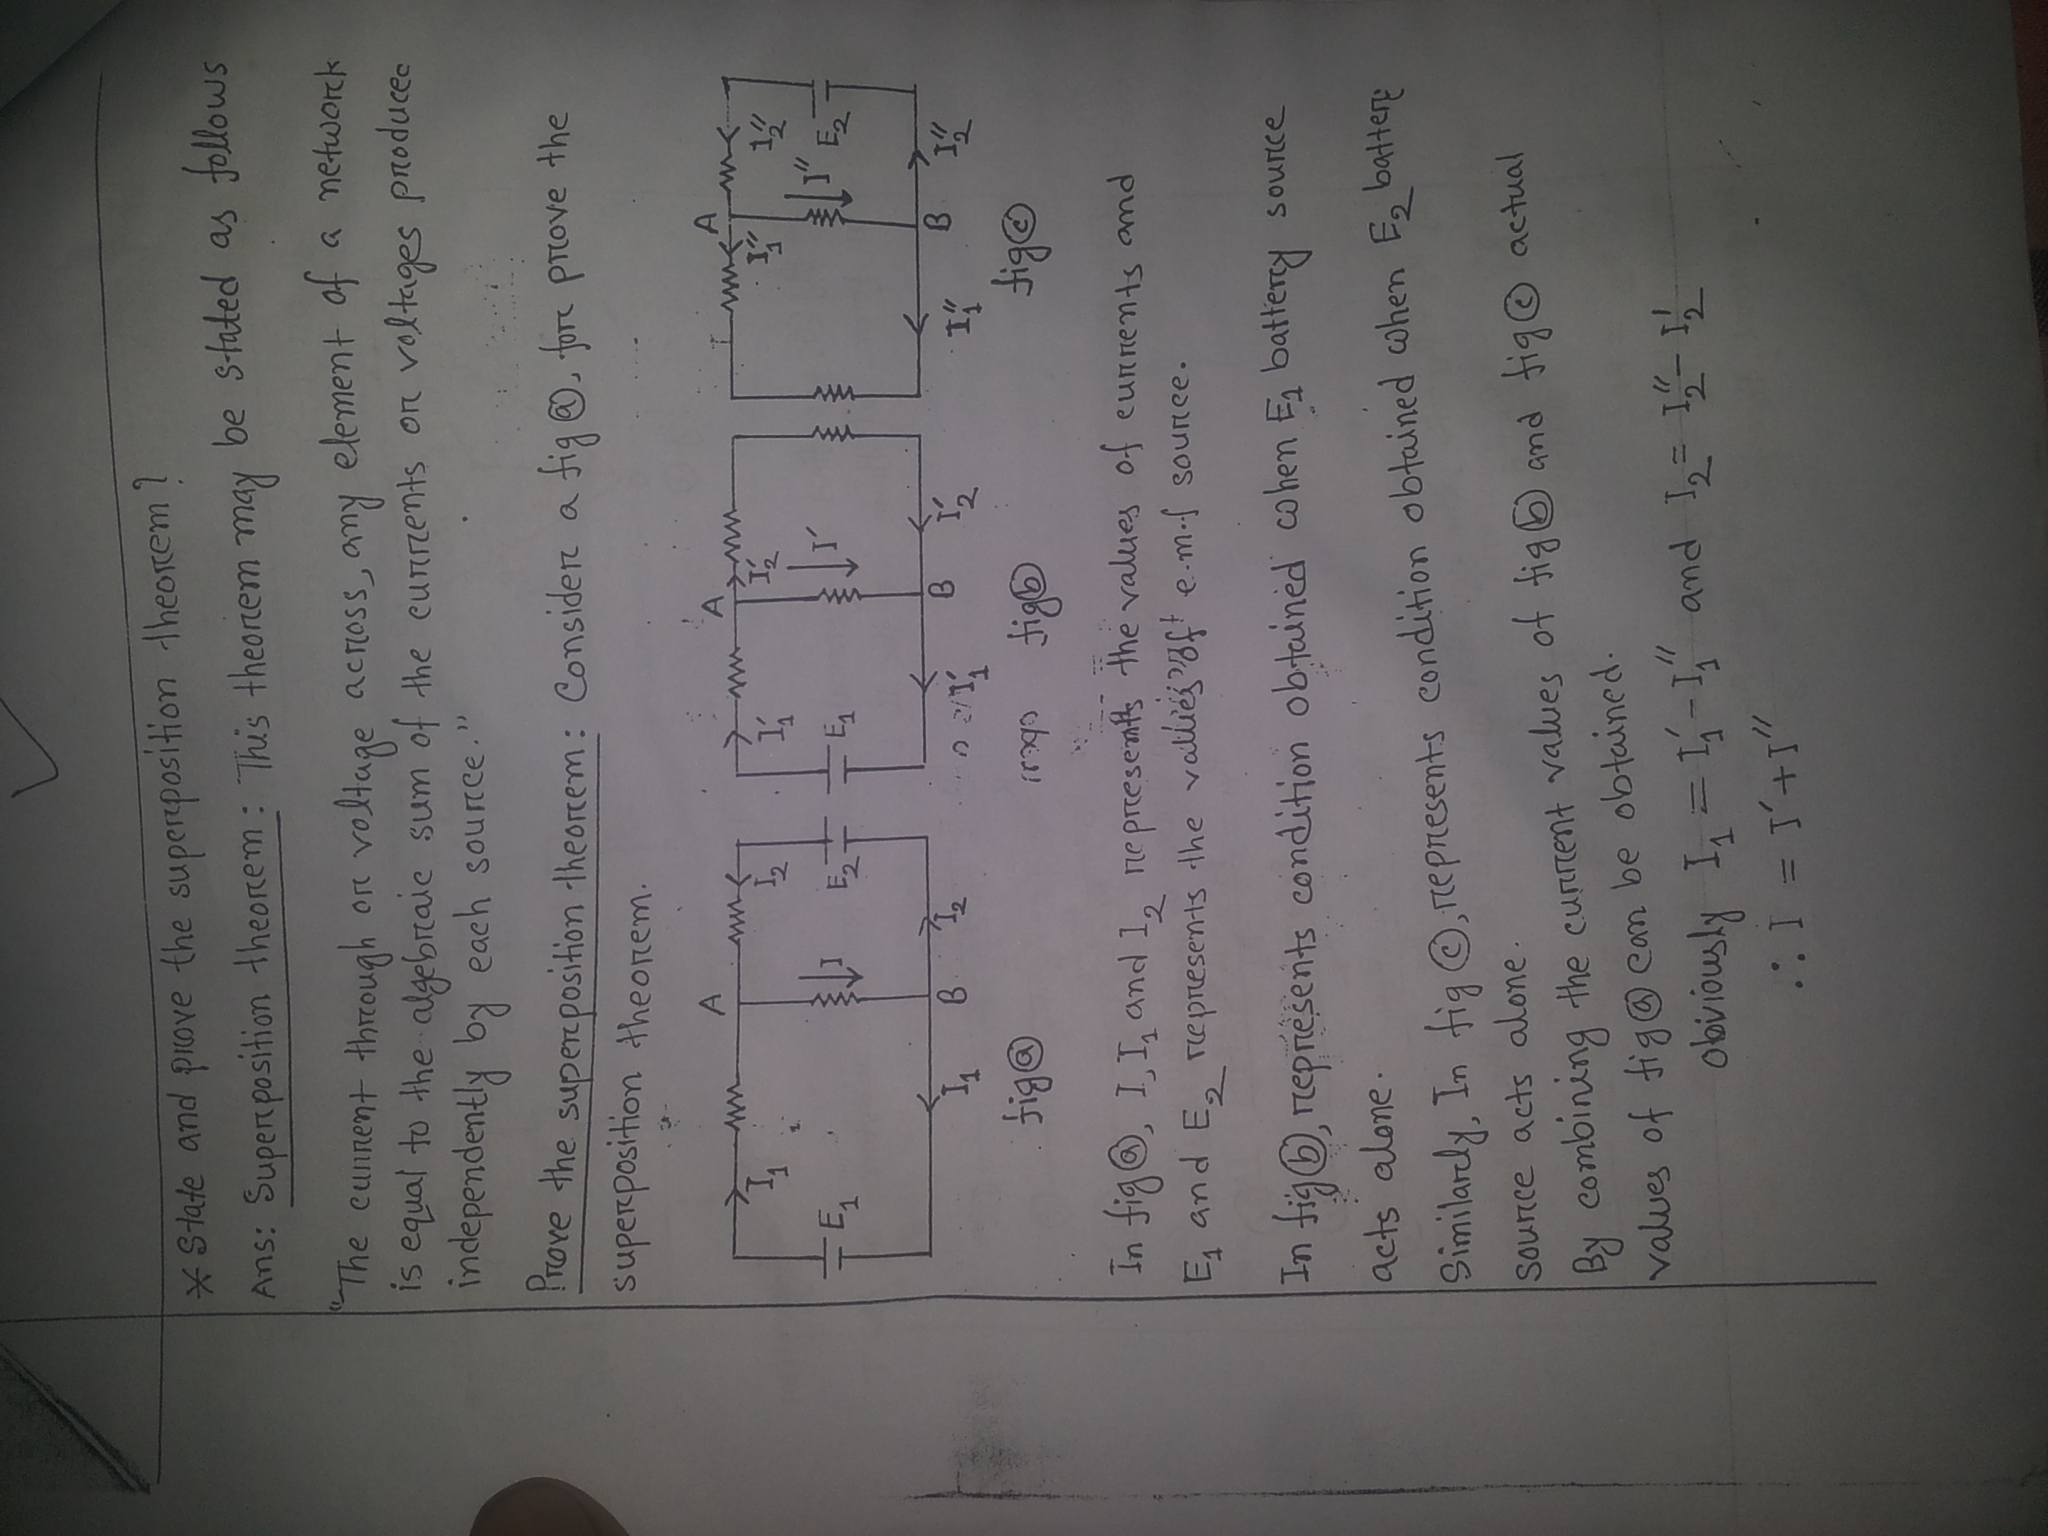 * State and prove the superposition theorem?
Ans: Superposition theorem: This theorem may be stated as follows
"The current through or voltage across, any element of a network
is equal to the algebraic sum of the currents or voltages produced
independently by each source."
Prove the superposition theorem: Consider a fig ⓐ, for prove the
superposition theorem.
A A A
I₁ I₂ I₁′ I₂′ I₁″ I₂″
E₁ I E₂ E₁ I′ I″ E₂
I₁ B I₂ I₁′ B I₂′ I₁″ B I₂″
fig ⓐ fig ⓑ fig ⓒ
In fig ⓐ, I, I₁ and I₂ represents the values of currents and
E₁ and E₂ represents the values of e.m.f source.
In fig ⓑ, represents condition obtained when E₁ battery source
acts alone.
Similarly, In fig ⓒ, represents condition obtained when E₂ battery
source acts alone.
By combining the current values of fig ⓑ and fig ⓒ actual
values of fig ⓐ can be obtained.
obviously I₁ = I₁′ - I₁″ and I₂ = I₂″ - I₂′
∴ I = I′ + I″